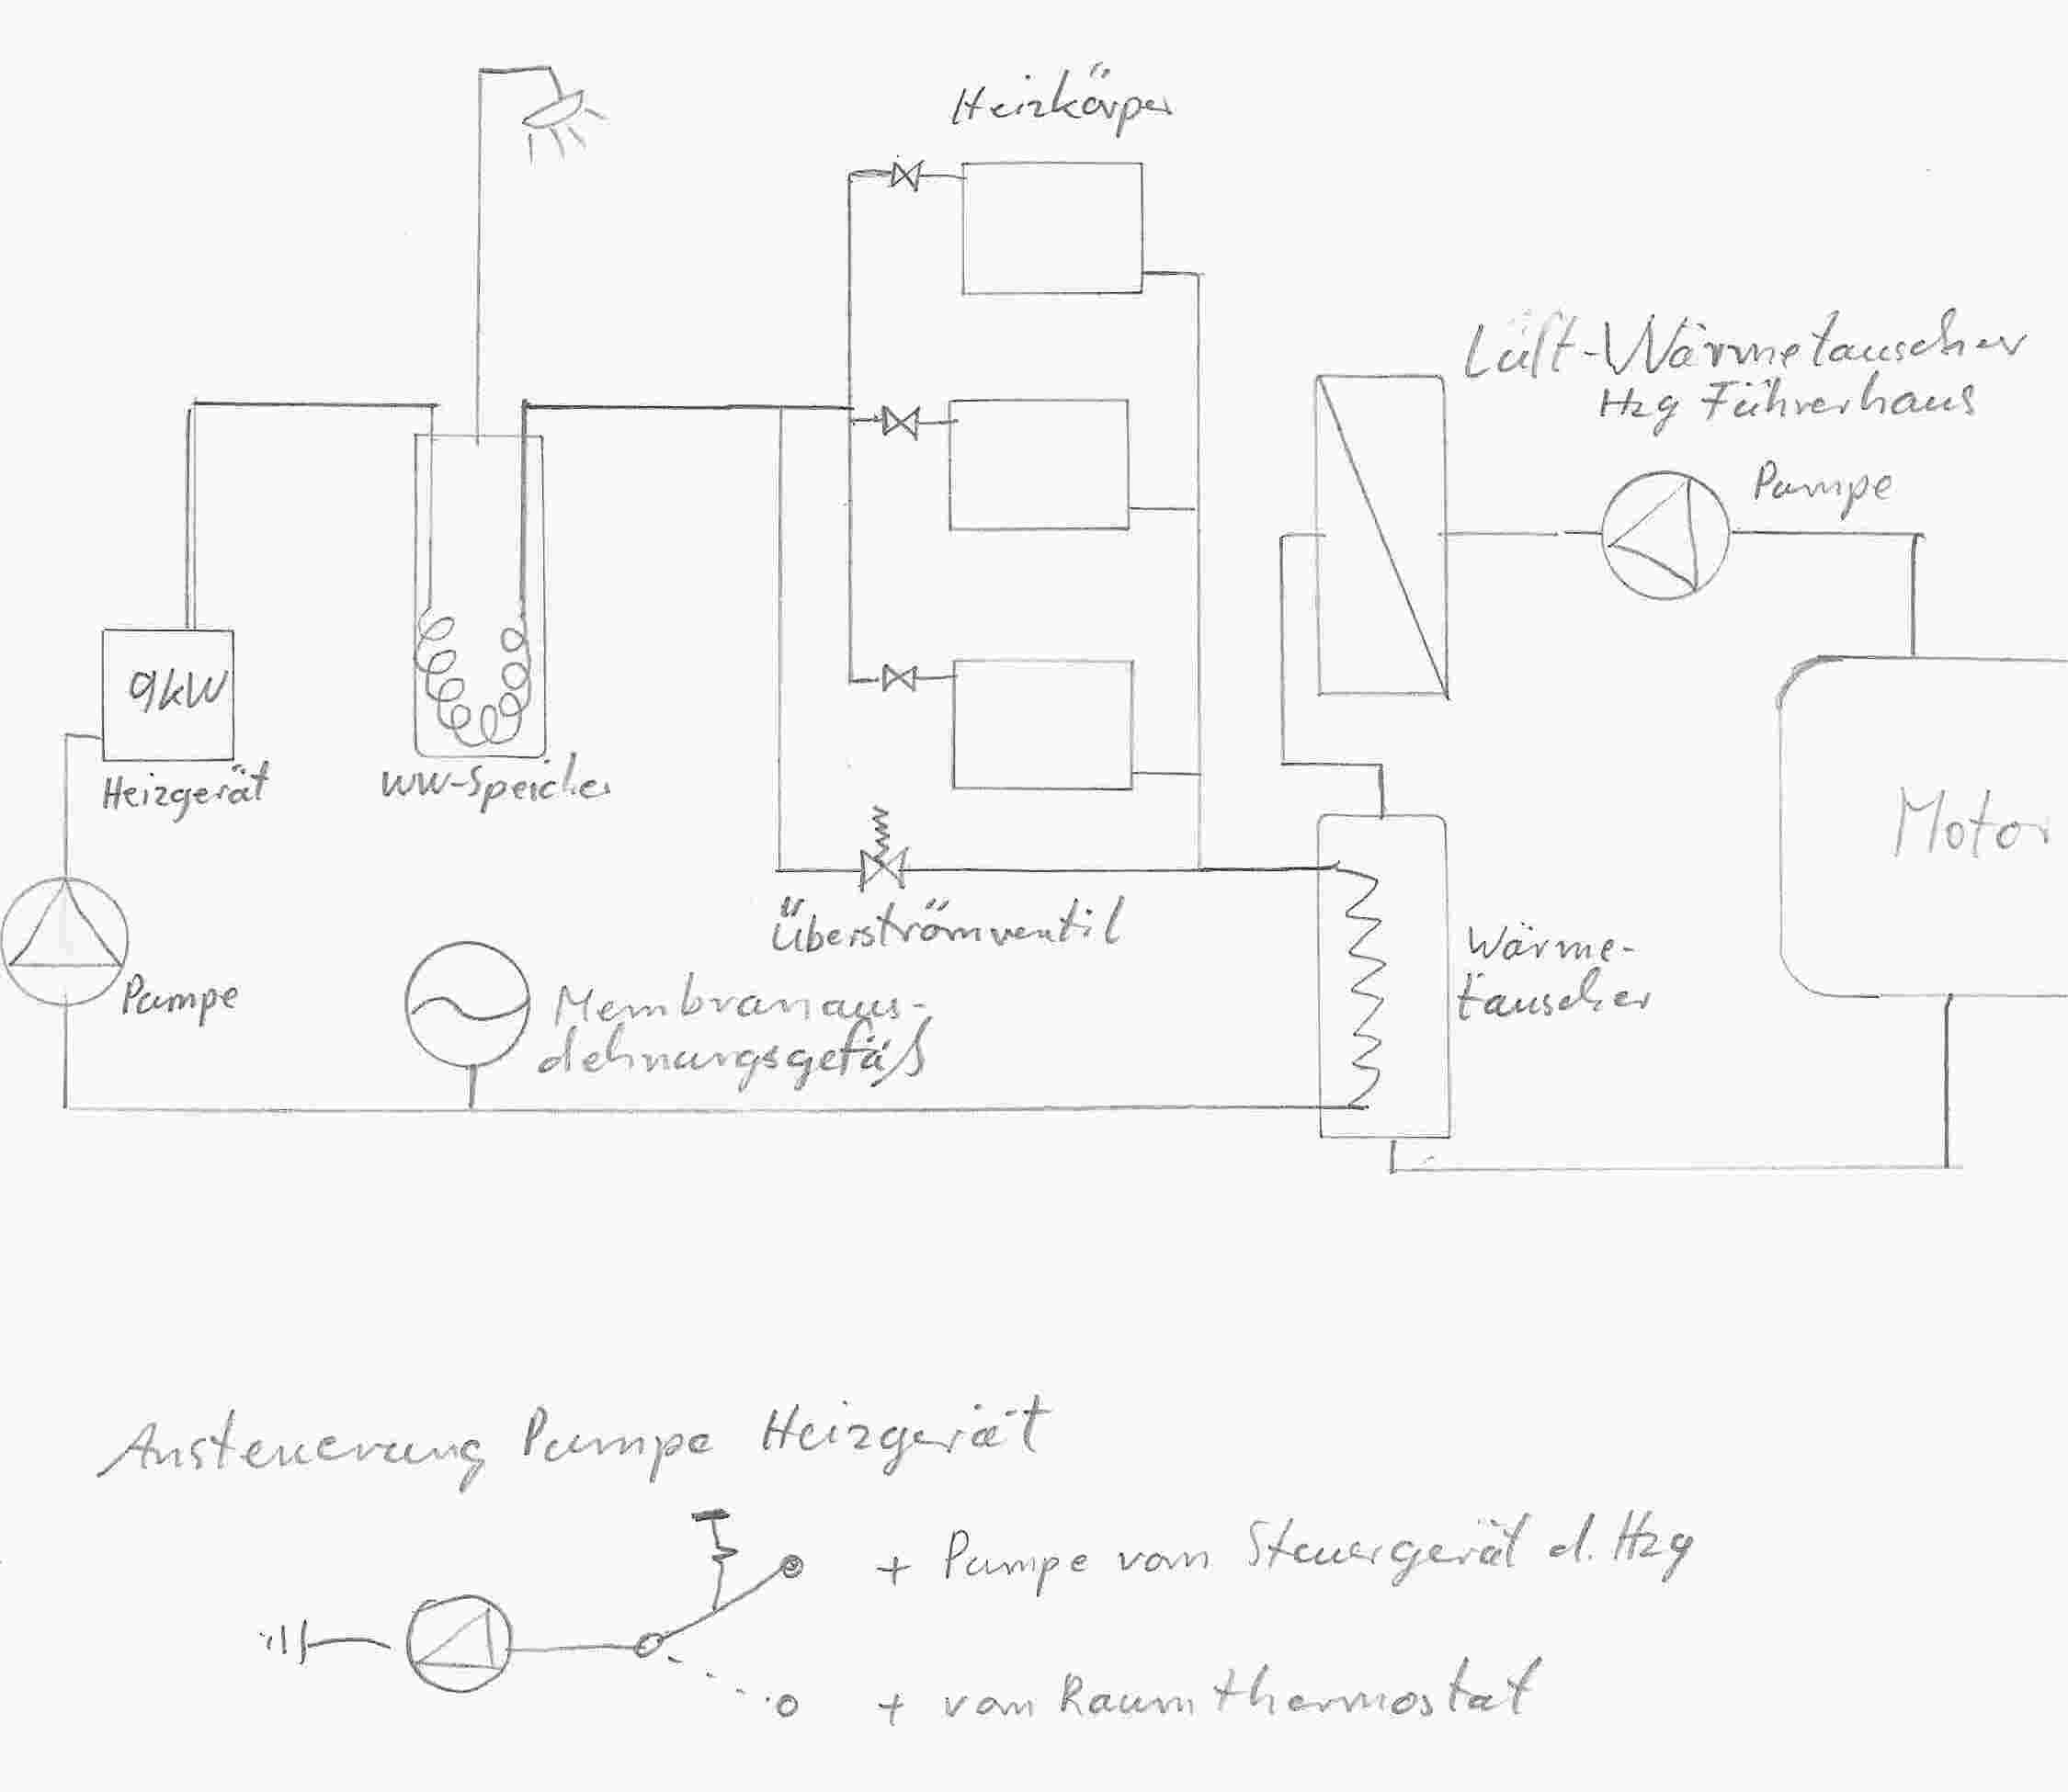 Heizkörper
Lüft-Wärmetauscher
Hzg Führerhaus
Pumpe
9kW
Heizgerät
WW-Speicher
Motor
Überströmventil
Wärme-
tauscher
Pumpe
Membranaus-
dehnungsgefäß
Ansteuerung Pumpe Heizgerät
+ Pumpe vom Steuergerät d. Hzg
+ vom Raumthermostat